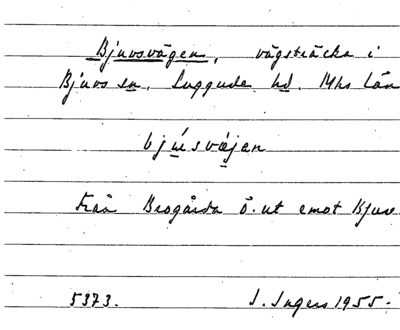 Bjuvsvägen, vägsträcka i
Bjuvs sn, Luggude hd. Mhs län
bjúsvæjen
Från Brogårda ö. ut emot Bjuv.
5373. I. Ingers 1955.